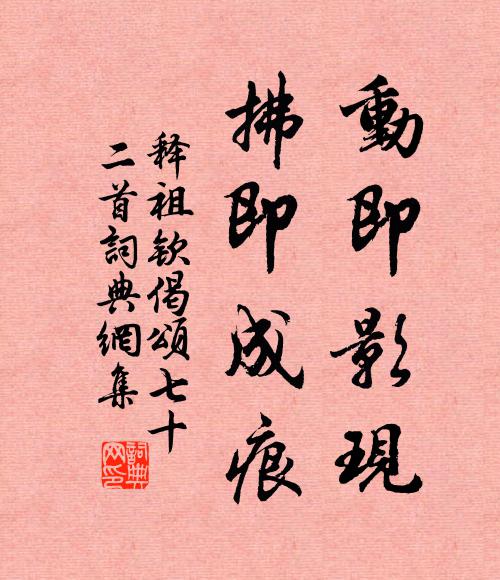 動即影現
拂即成痕
释祖欽偈頌七十
二首詞典網集
詞典網印